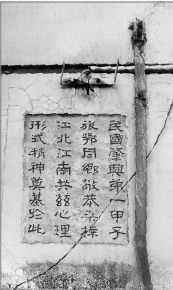 民國肇興第一甲子
旅鄂同鄉敬恭桑梓
江北江南共茲心理
形式精神奠基於此